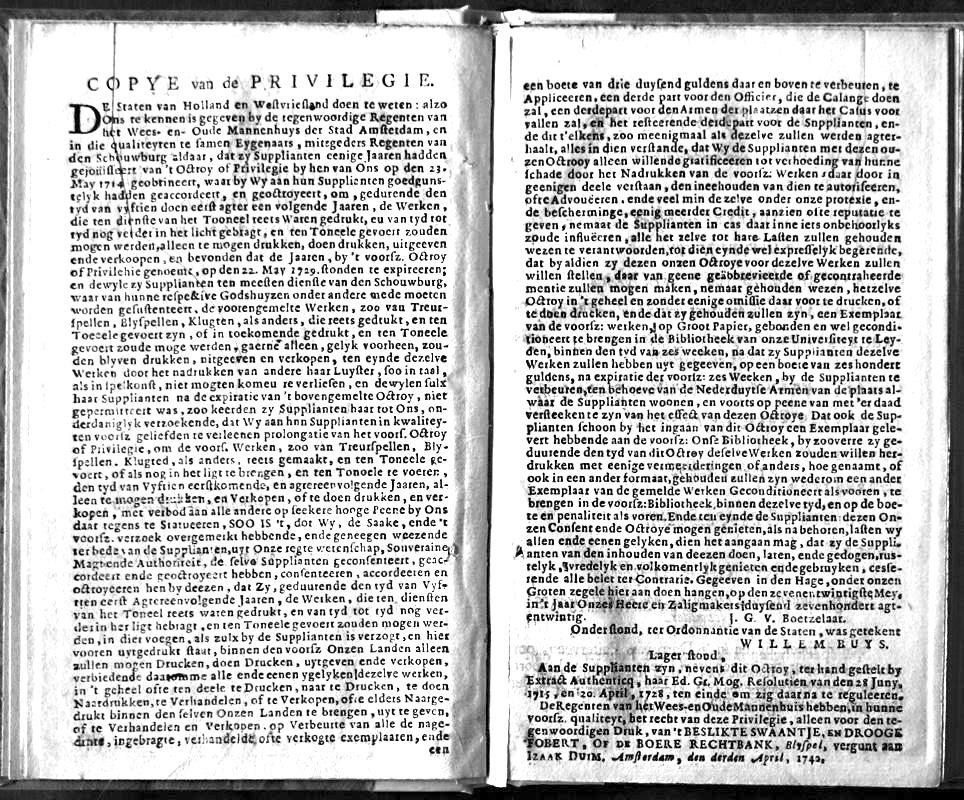 COPYE van de PRIVILEGIE.
DE Staten van Holland en Westvriesland doen te weten: alzo
Ons te kennen is gegeven by de tegenwoordige Regenten van
het Wees- en- Oude Mannenhuys der Stad Amsterdam, en
in die qualiteyten te samen Eygenaars, mitsgeders Regenten van
den Schouwburg aldaar, dat zy Supplianten eenige Jaaren hadden
gejouisseert van 't Octroy of Privilegie by hen van Ons op den 23.
May 1714 geobtineert, waar by Wy aan hun Supplianten goedguns-
telyk hadden geaccordeert, en geoctroyeert, om, gedurende den
tyd van vyftien doen eerst agter een volgende Jaaren, de Werken,
die ten dienste van het Tooneel reets Waren gedrukt, eu van tyd tot
tyd nog verder in het licht gebragt, en ten Toneele gevoert zouden
mogen werden, alleen te mogen drukken, doen drukken, uitgeeven
ende verkoopen, en bevonden dat de Jaaren, by 't voorsz. Octroy
of Privilehie genoemt, op den 22. May 1729. stonden te expireeren;
en dewyle zy Supplianten ten meesten dienste van den Schouwburg,
waar van hunne respective Godshuyzen onder andere mede moeten
worden gesustenteert, de voorengemelte Werken, zoo van Treur-
spellen, Blyspellen, Klugten, als anders, die reets gedrukt, en ten
Toneele gevoert zyn, of in toekomende gedrukt, en ten Toneele
gevoert zoude moge werden, gaerne alleen, gelyk voorheen, zou-
den blyven drukken, uitgeeven en verkopen, ten eynde dezelve
Werken door het nadrukken van andere haar Luyster, soo in taal,
als in spelkonst, niet mogten komeu te verliesen, en dewylen sulx
haar Supplianten na de expiratie van 't bovengemelte Octroy, niet
gepermitteert was, zoo keerden zy Supplianten haar tot Ons, on-
derdaniglyk verzoekende, dat Wy aan hnn Supplianten in kwaliteytetn
ten voorsz geliefden te verleenen prolongatie van het voors. Octroy
of Privilegie, om de voors. Werken, zoo van Treurspellen, Bly-
spellen. Klugted, als anders, reets gemaakt, en ten Toneele ge-
voert, of als nog in het ligt te brengen, en ten Tonoele te voeren,
den tyd van Vyftien eerstkomende, en agtereenvolgende Jaaren, al-
leen te mogen drukken, en Verkopen, of te doen drukken, en ver-
kopen, met verbod aan alle andere op seekere hooge Peene by Ons
daar tegens te Statueeren, SOO IS 't, dot Wy, de Saake, ende 't
voorsz. verzoek overgemerkt hebbende, ende geneegen weezende
ter bede van de Supplianten, uyt Onze regte wetenschap, Souveraine
Magtende Authoriteit, de selve Supplianten geconsenteert, geac-
cordeert ende geoctroyeert hebben, consenteeren, accordeeren en
octroyeeren hen by deezen, dat Zy, geduurende den tyd van Vyf-
tien eerst Agtereenvolgende Jaaren, de Werken, die ten diensten
van het Toneel reets waren gedrukt, en van tyd tot tyd nog ver-
der in her ligt gebragt, en ten Toneele gevoert zouden mogen wer-
den, in dier voegen, als zulx by de Supplianten is verzogt, en hier
vooren uytgedrukt staat, binnen den voorsz Onzen Landen alleen
zullen mogen Drucken, doen Drucken, uytgeven ende verkopen,
verbiedende daaromme alle ende eenen ygelyken dezelve werken,
in 't geheel ofte ten deele te Drucken, naar te Drucken, te doen
Naardrukken, te Verhandelen, of te Verkopen, ofte elders Naarge-
drukt binnen den selven Onzen Landen te brengen, uyt te geven,
of te Verhandelen en Verkopen, op Verbeurte van alle de nage-
drukte, ingebragte, verhandelde, ofte verkogte exemplaaren, ende
een
een boete van drie duysend guldens daar en boven te verbeuren, te
Appliceeren, een derde part voor den Officier, die de Calange doen
zal, een derdepart voor den Armen der plaatzen daar het Casus voor
vallen zal, en het resteerende derdepart voor de Snpplianten, en-
de dit t'elkens, zoo meenigmaal als dezelve zullen werden agter-
haalt, alles in dien verstande, dat Wy de Supplianten met dezen ou-
zen Octroy alleen willende gratificeeren tot verhoeding van hunne
schade door het Nadrukken van de voorsz: Werken, daar door in
geenigen deele verstaan, den ineehouden van dien te autoriseeren,
ofte Advoueeren. ende veel min de zelve onder onze protexie, en-
de bescherminge, eenig meerder Credit, aanzien ofte reputatie te
geven, nemaat de Supplianten in cas daar inne iets onbehoorlyks
zoude influeeren, alle het zelve tot hare Lasten zullen gehouden
wezen te verantwoorden, tot dien eynde wel expresselyk begerende,
dat by aldien zy dezen onzen Octroye voor dezelve Werken zullen
willen stellen, daar van geene geäbbrevieerde of gecontraheerde
mentie zullen mogen maken, nemaar gehouden wezen, hetzelve
Octroy in 't geheel en zonder eenige omissie daar voor te drucken, of
te doen drucken, ende dat zy gehouden zullen zyn, een Exemplaar
van de voorsz: werken, op Groot Papier, gebonden en wel gecondi-
tioneert te brengen in de Bibliotheek van onze Universiteyt te Ley-
den, binnen den tyd van zes weeken, na dat zy Supplianten dezelve
Werken zullen hebben uyt gegeeven, op een boete van zes hondert
guldens, na expiratie der voorsz: zes Weeken, by de Supplianten te
verbeuren, ten behoeve van de Nederduytse Armen van de plaats al-
waar de Supplianten woonen, en voorts op peene van met 'er daad
versteeken te zyn van het effect van dezen Octroye. Dat ook de Sup-
plianten schoon by het ingaan van dit Octroy een Exemplaar gele-
vert hebbende aan de voorsz: Onse Bibliotheek, by zooverre zy ge-
duurende den tyd van dit Octroy deselve Werken zouden willen her-
drukken met eenige vermeerderingen of anders, hoe genaamt, of
ook in een ander formaat, gehouden zullen zyn wederom een ander
Exemplaar van de gemelde Werken Geconditioneert als vooren, te
brengen in de voorsz: Bibliotheek, binnen dezelve tyd, en op de boe-
te en penaliteit als voren. Ende ten eynde de Supplianten dezen On-
zen Consent ende Octroye mogen genieten, als na behoren, lasten wy
allen ende eenen gelyken, dien het aangaan mag, dat zy de Suppli-
anten van den inhouden van deezen doen, laten, ende gedogen, rus-
telyk, vredelyk en volkomentlyk genieten ende gebruyken, cesse-
rende alle belet ter Contrarie. Gegeeven in den Hage, onder onzen
Groten zegele hier aan doen hangen, op den zevenentwintigste Mey,
in 't Jaar Onzes Heere en Zaligmakers duysend zevenhondert agt-
entwintig. J. G. V. Boetzelaar.
Onder stond, ter Ordonnantie van de Staten, was getekent
WILLEM BUYS.
Lager stond,
Aan de Supplianten zyn, nevens dit Octroy, ter hand gestelt by
Extract Authenticq, haar Ed. Gr. Mog. Resolutien van den 28 Juny.
1715, en 20. April, 1728, ten einde om zig daar na te reguleeren.
De Regenten van het Wees-en Oude Mannenhuis hebben, in hunne
voorsz. qualiteyt, het recht van deze Privilegie, alleen voor den te-
genwoordigen Druk, van 't BESLIKTE SWAANTJE, EN DROOGE
FOBERT, OF DE BOERE RECHTBANK, Blyspel, vergunt aan
IZAAK DUIM. Amsterdam, den derden April, 1742.